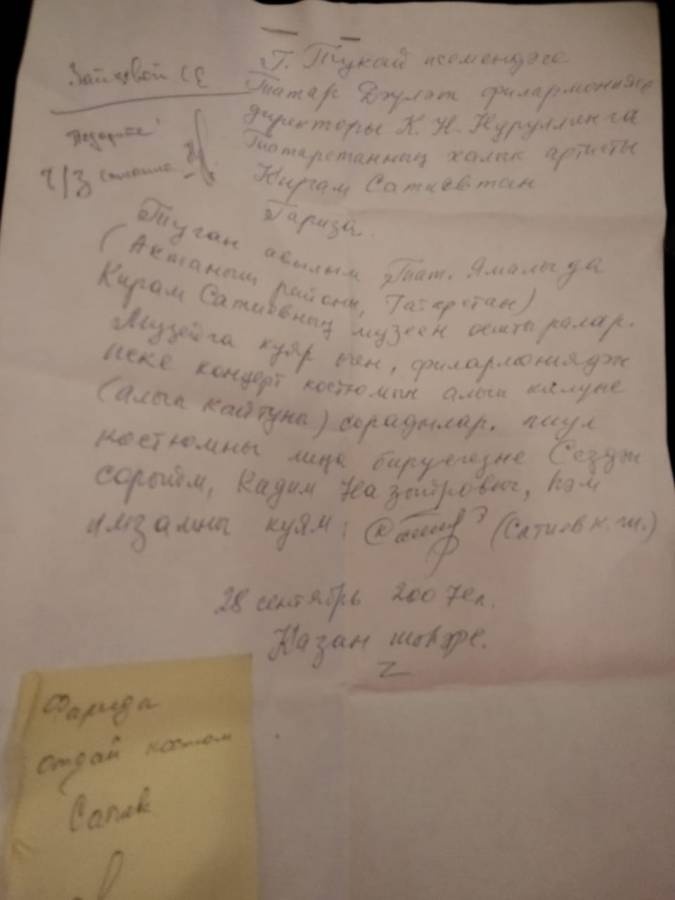 Зайцевой СЕ
Подарите!
Г. Тукай исемендәге
Татар Дәүләт филармониясе
директоры К. Н. Нуруллинга
Татарстанның халык артисты
Кирам Сатиевтан
Гариза.
Туган авылым Тат. Ямалыда
(Актаныш районы, Татарстан)
Кирам Сатиевның музеен ачтыралар.
Музейга куяр өчен, филармониядән
иске концерт костюмын алып килүне
(алып кайтуны) сорадылар. Шул
костюмны миңа бирүегезне Сездән
сорыйм, Кадим Назыйрович, һәм
имзамны куям: (Сатиев К. Ш.)
28 сентябрь 2007 ел.
Казан шәһәре.
Фарида
отдай костюм
Сатиев